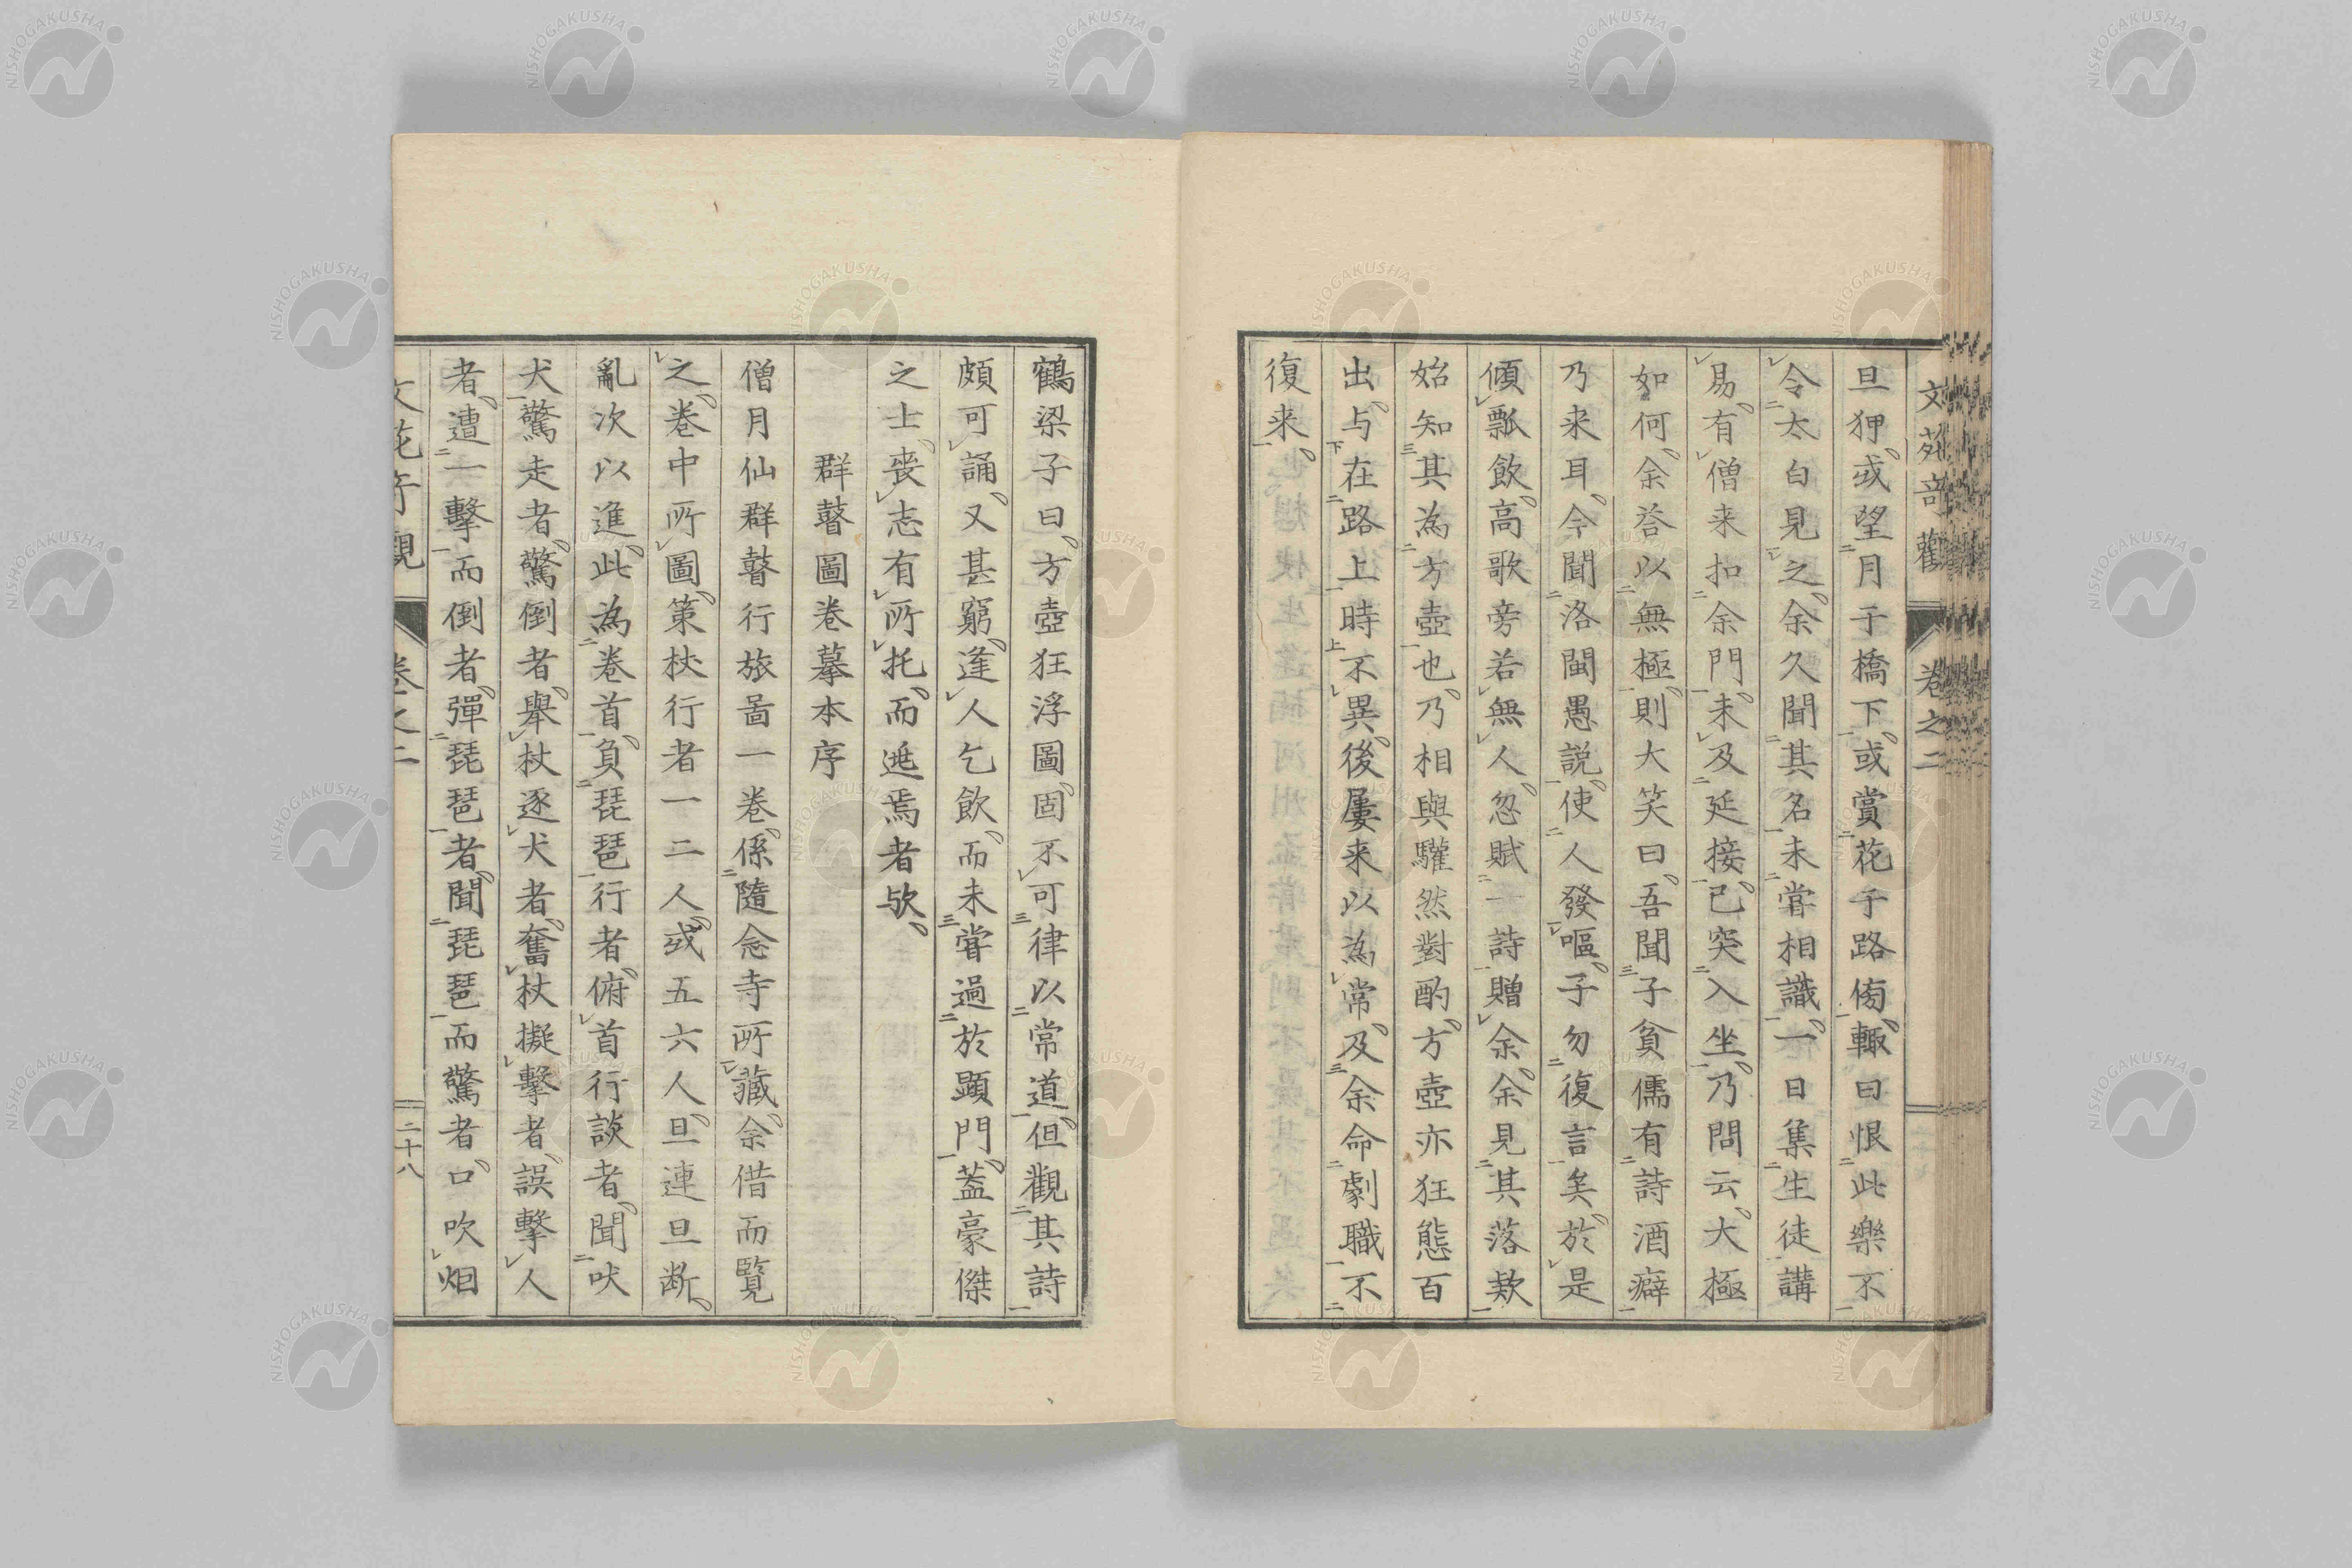 文苑奇觀 卷之二
且狎或望月于橋下或賞花于路傍輙曰恨此樂不
令太白見之余久聞其名未嘗相識一日集生徒講
易有僧来扣余門未及延接已突入坐乃問云大極
如何余答以無極則大笑曰吾聞子貧儒有詩酒癖
乃来耳今聞洛閩愚説使人發嘔子勿復言矣於是
傾瓢飲高歌旁若無人忽賦一詩贈余余見其落款
始知其為方壺也乃相與驩然對酌方壺亦狂態百
出与在路上時不異後屡来以為常及余命劇職不
復来
鶴梁子曰方壺狂浮圖固不可律以常道但觀其詩
頗可誦又甚窮逢人乞飲而未甞過於顕門蓋豪傑
之士喪志有所托而逃焉者歟
群瞽圖巻摹本序
僧月仙群瞽行旅啚一巻係隨念寺所藏余借而覧
之巻中所圖策杖行者一二人或五六人且連且断
亂次以進此為巻首負琵琶行者俯首行談者聞吠
犬驚走者驚倒者舉杖逐犬者奮杖擬擊者誤擊人
者遭一擊而倒者彈琵琶者聞琵琶而驚者口吹烟
文苑奇觀 卷之二 二十八
NISHOGAKUSHA